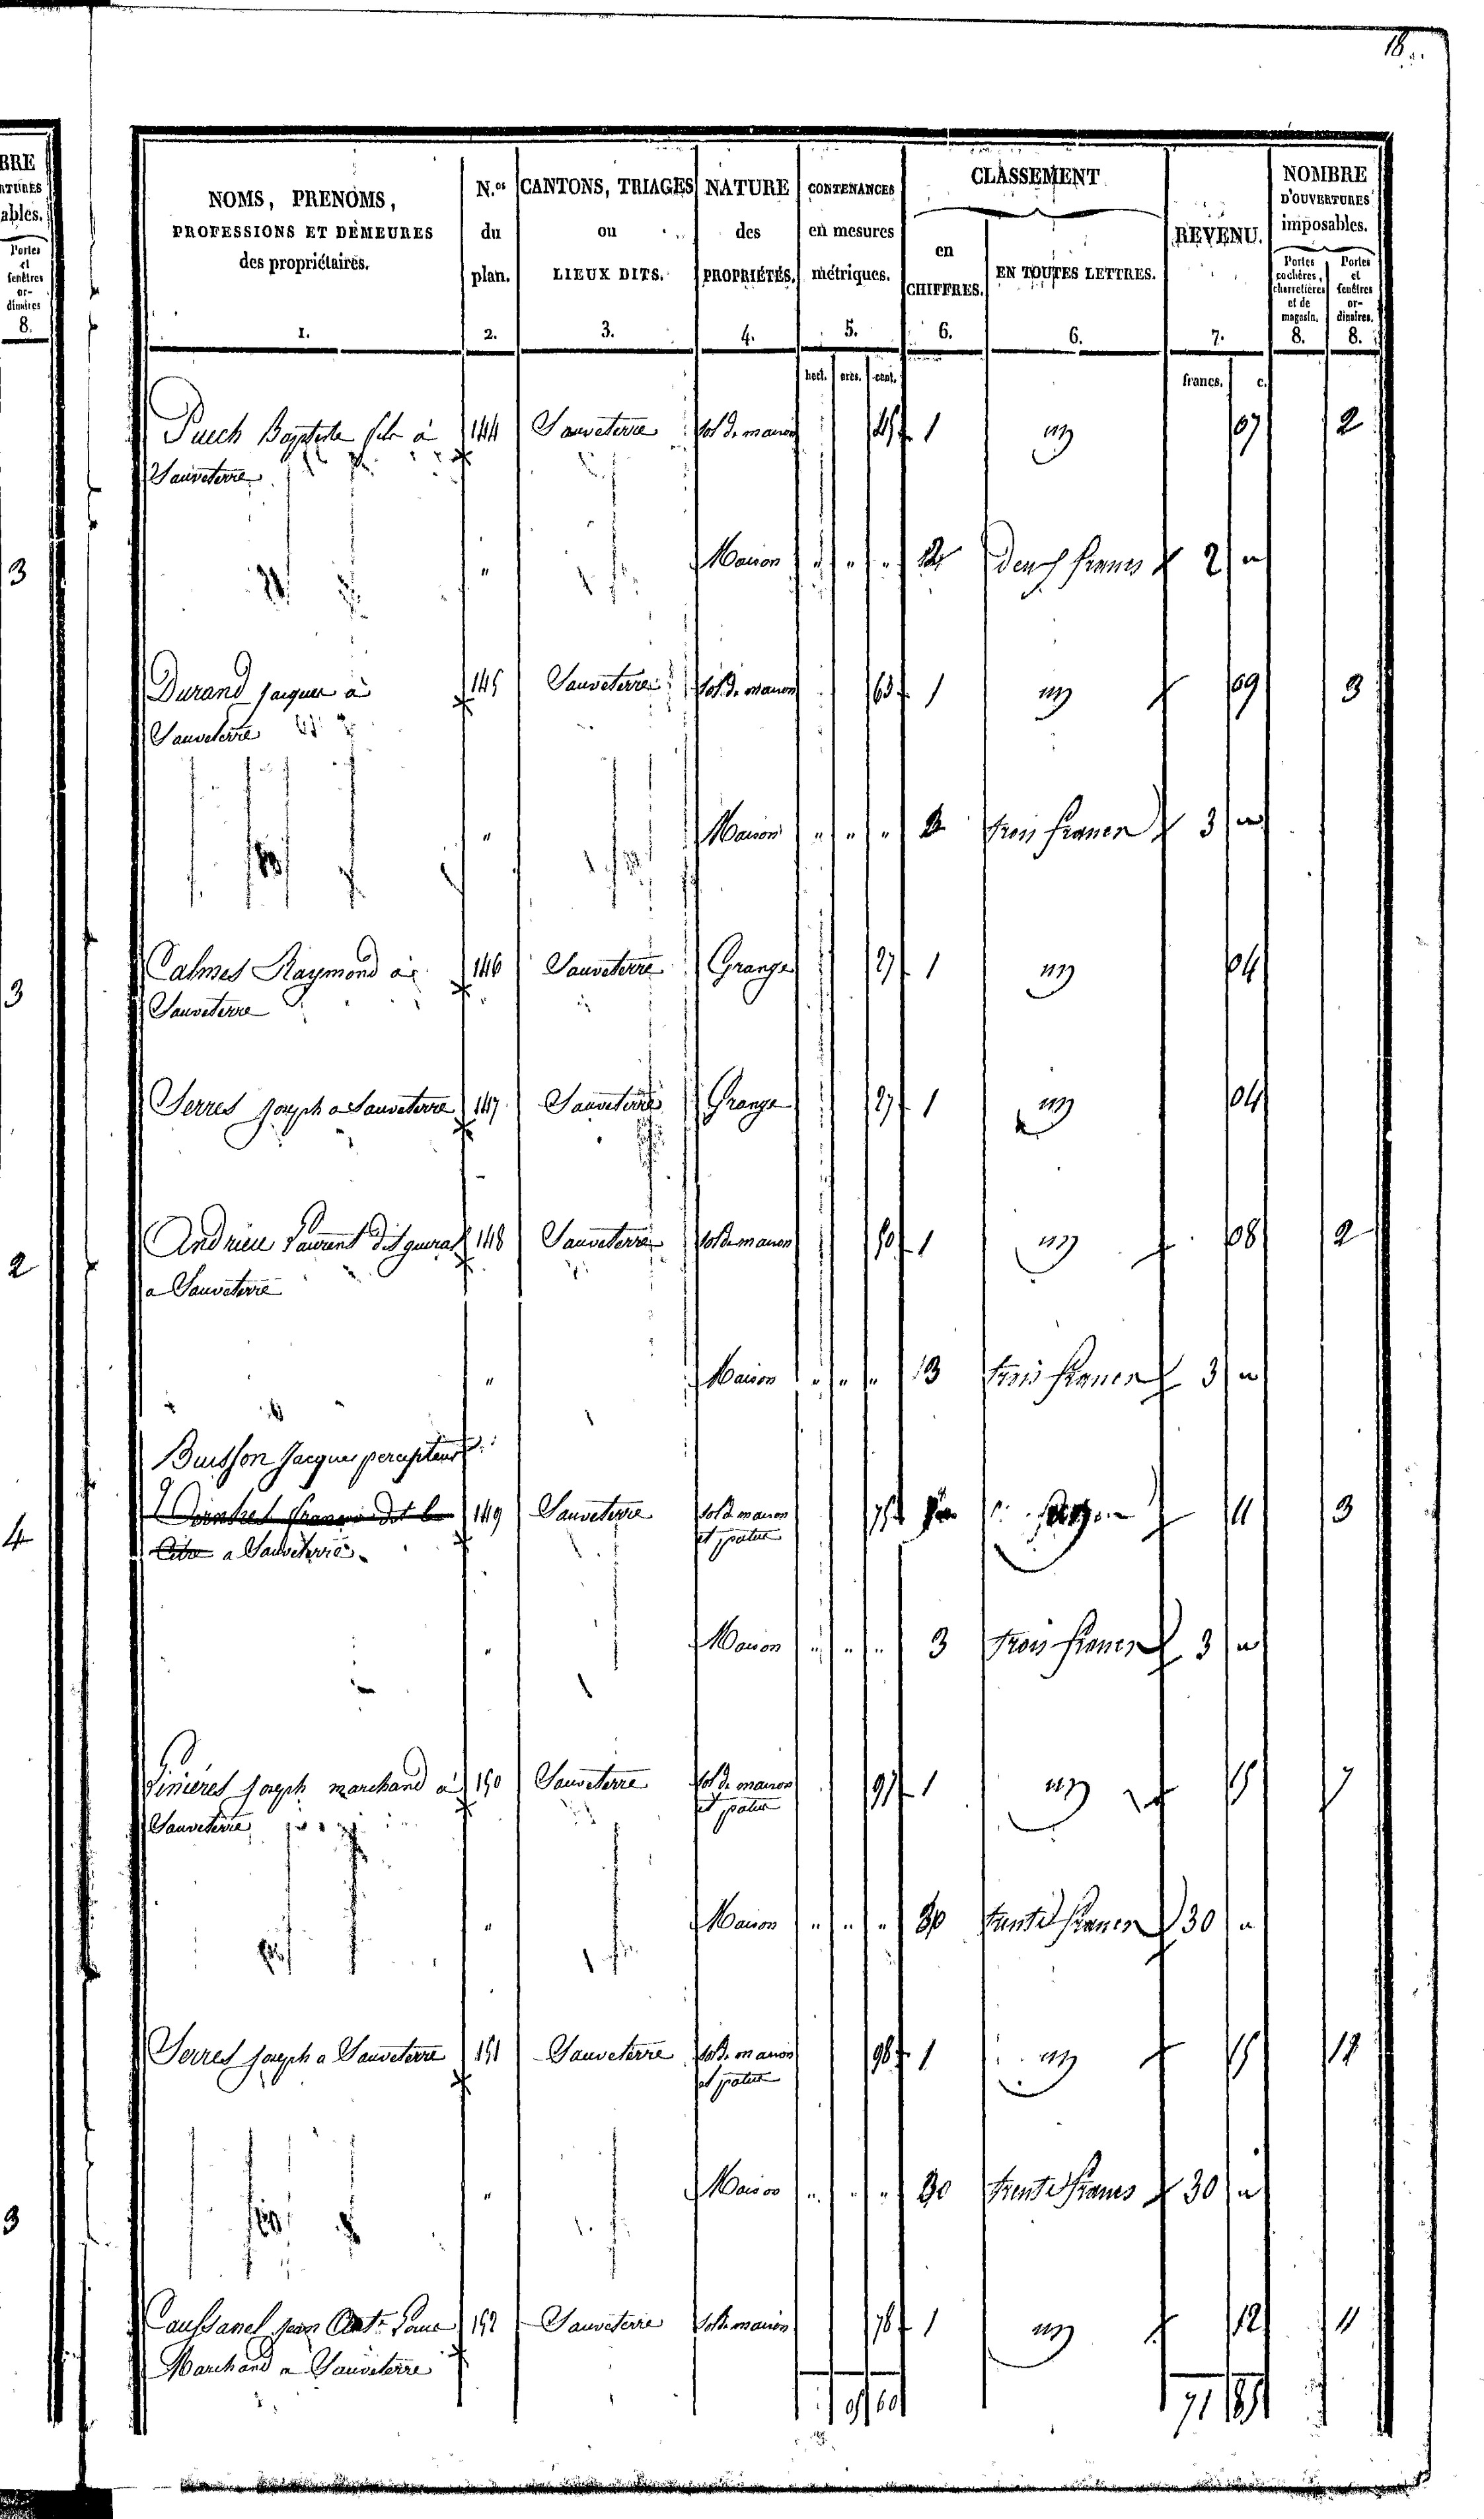 18
BRE
ATURES
ables.
Portes
et
fenêtres
or-
dinaires
8.
3
3
2
4
3
NOMS, PRENOMS,
PROFESSIONS ET DEMEURES
des propriétaires.
1.
N.os
du
plan.
2.
CANTONS, TRIAGES
ou
LIEUX DITS.
3.
NATURE
des
PROPRIÉTÉS.
4.
CONTENANCES
en mesures
métriques.
5.
CLASSEMENT
en
CHIFFRES.
6.
EN TOUTES LETTRES.
6.
REVENU.
7.
NOMBRE
D'OUVERTURES
imposables.
Portes
cochères,
charretières
et de
magasin.
8.
Portes
et
fenêtres
or-
dinaires.
8.
hect. ares. cent. francs. c.
Puech Baptiste fils à 144 Sauveterre sol de maison 45 1 un 07 2
Sauveterre
" Maison " " " 2 deux francs 2 "
Durand jacques à 145 Sauveterre sol de maison 63 1 un 09 3
Sauveterre
" Maison " " " trois francs 3 "
Calmes Raymond à 146 Sauveterre Grange 27 1 un 04
Sauveterre
Serres joseph a Sauveterre 147 Sauveterre Grange 27 1 un 04
Andrieu Laurent dit 148 Sauveterre sol de maison 50 1 un 08 2
a Sauveterre
" Maison " " " 3 trois francs 3 "
Buisson Jacques percepteur
françois dit le 149 Sauveterre sol de maison 75 11 3
a Sauveterre et patus
" Maison " " " 3 trois francs 3 "
Ginières joseph marchand à 150 Sauveterre sol de maison 97 1 un 15 7
Sauveterre et patus
" Maison " " " 30 trente francs 30 "
Serres joseph a Sauveterre 151 Sauveterre sol de maison 98 1 un 15 12
et patus
" Maison " " " 30 trente francs 30 "
Caussanel jean 152 Sauveterre sol de maison 78 1 un 12 11
Marchand a Sauveterre
05 60 71 85